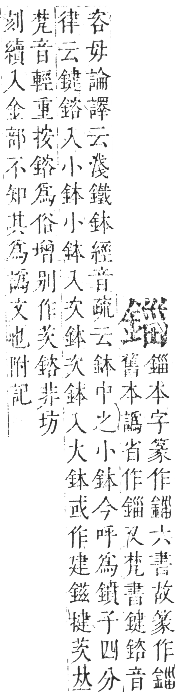 鍿
錙本字篆作鍿六書故篆作錙
舊本譌省作錙又梵書鍵𨩲音
咨毋論譯云淺鐵鉢經音疏云鉢中之小鉢今呼為鐼子四分
律云鍵𨩲入小鉢小鉢入次鉢次鉢入大鉢或作建鎡犍茨𠀤
梵音輕重按𨩲為俗增別作茨𨩲非坊
刻續入金部不知其為譌文也附記